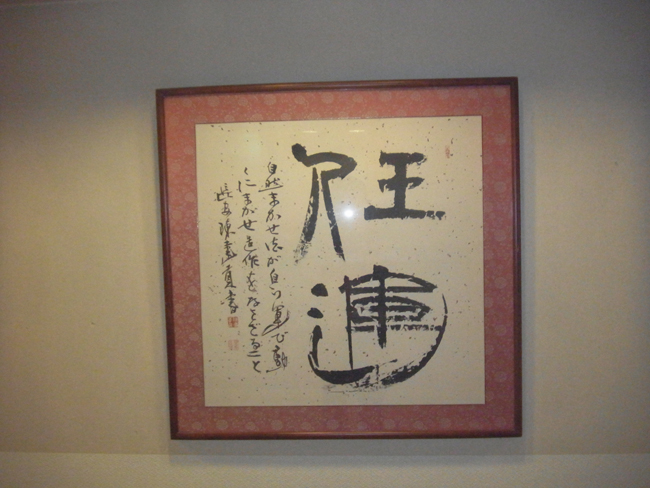 任運
自然まかせ法が自ら運び動
くにまかせ造作をなさざること
長安陳
書